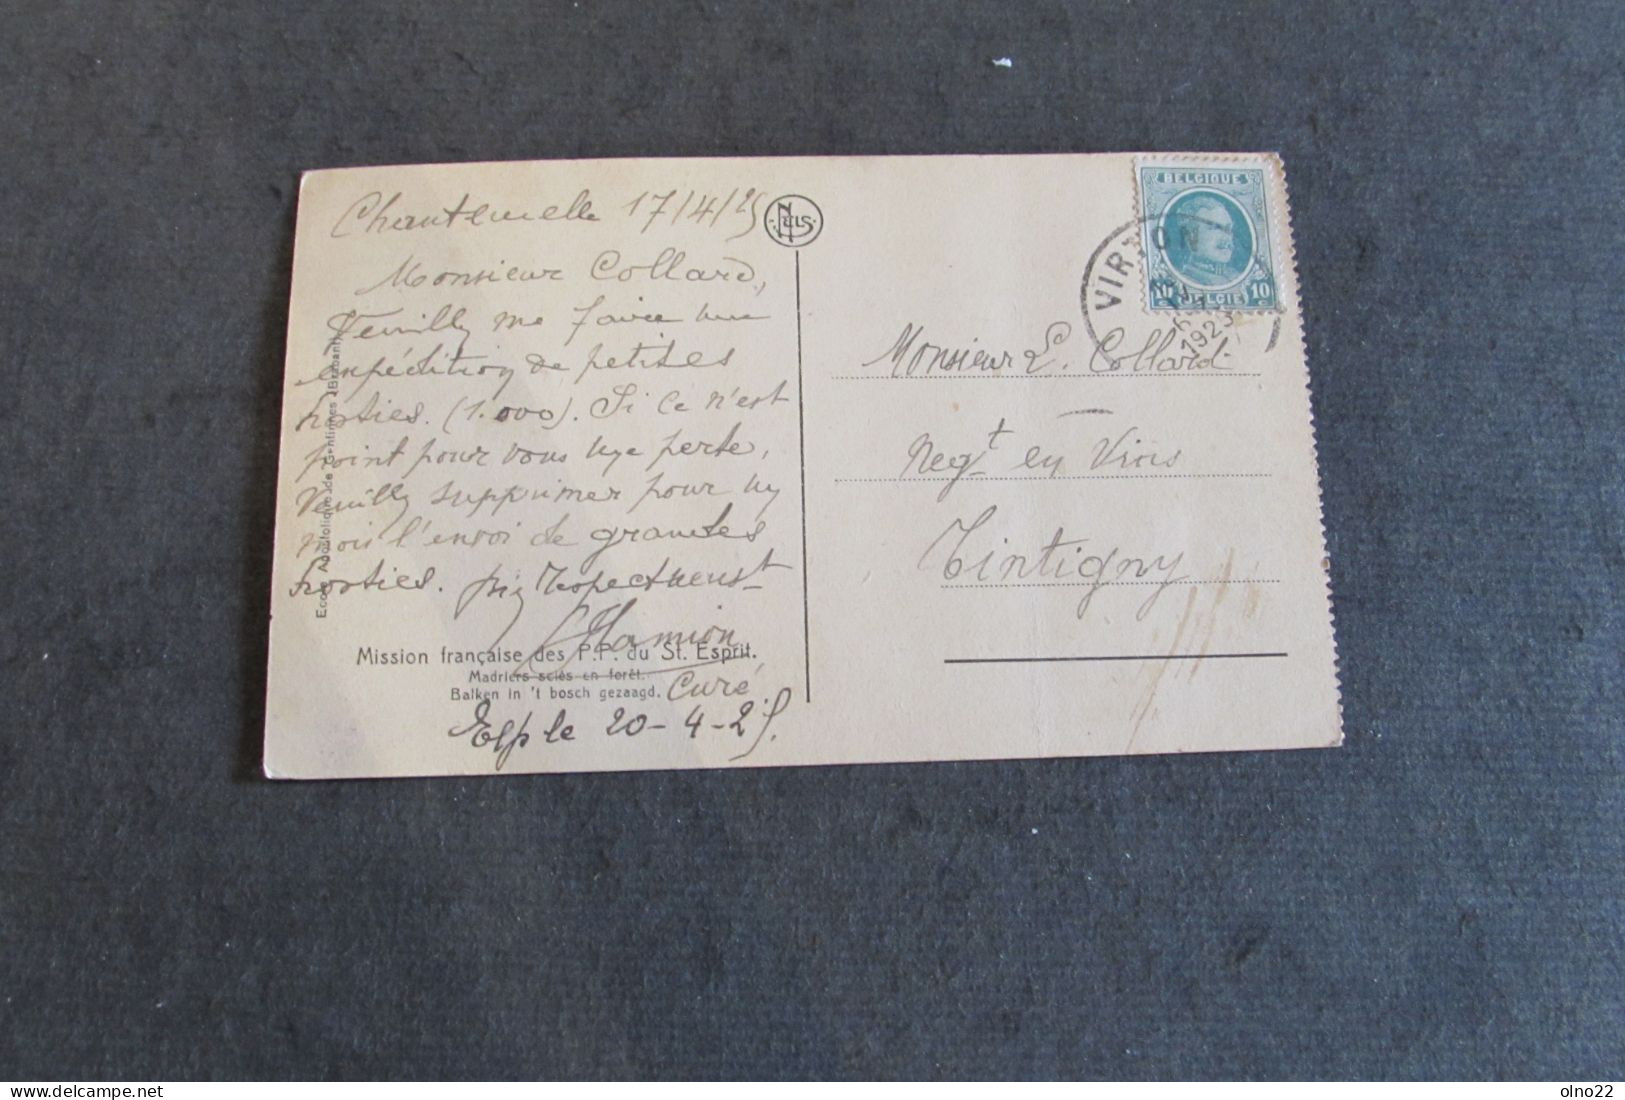 Chantemelle 17/4/25
Monsieur Collard,
Veuilly me faire une
expédition de petites
hosties. (1.000). Si ce n'est
point pour vous une perte,
Veuilly supprimer pour un
mois l'envoi de grandes
hosties. Respectueust
Hamion
Curé
Exp le 20-4-25.
Mission française des P.P. du St. Esprit.
Madriers sciés en forêt.
Balken in 't bosch gezaagd.
Ecole Apostolique de Gentinnes (Brabant)
NELS
BELGIQUE
10
BELGIE
VIRTON
1923
Monsieur L. Collard.
Negt en Vins
Tintigny
olno22